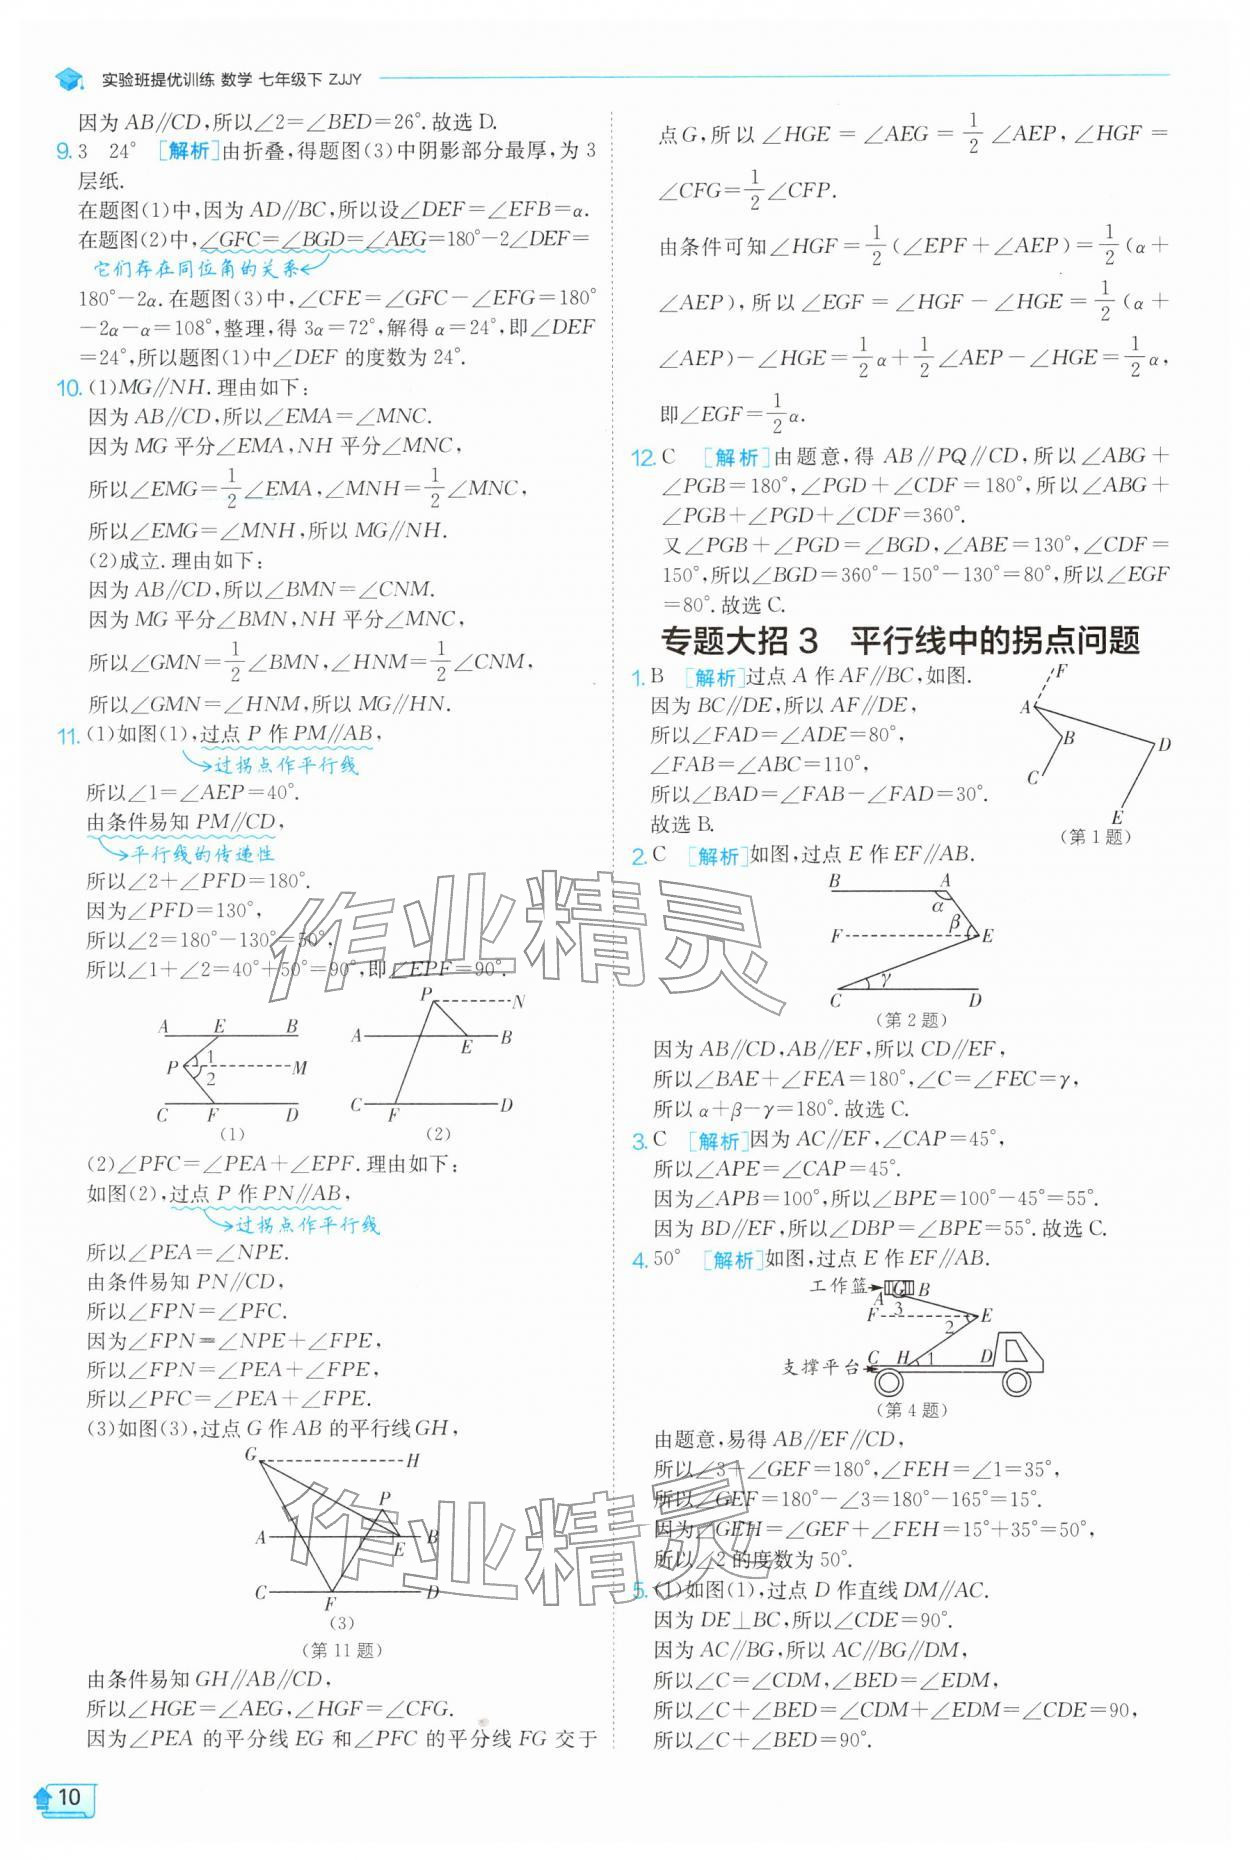 实验班提优训练 数学 七年级下 ZJJY
因为 AB∥CD,所以∠2=∠BED=26°.故选 D.
9. 3  24°  [解析]由折叠,得题图(3)中阴影部分最厚,为 3
层纸.
在题图(1)中,因为 AD∥BC,所以设∠DEF=∠EFB=α.
在题图(2)中,∠GFC=∠BGD=∠AEG=180°-2∠DEF=
它们存在同位角的关系
180°-2α.在题图(3)中,∠CFE=∠GFC-∠EFG=180°
-2α-α=108°,整理,得 3α=72°,解得 α=24°,即∠DEF
=24°,所以题图(1)中∠DEF 的度数为 24°.
10. (1)MG∥NH.理由如下:
因为 AB∥CD,所以∠EMA=∠MNC.
因为 MG 平分∠EMA,NH 平分∠MNC,
所以∠EMG=1/2∠EMA,∠MNH=1/2∠MNC,
所以∠EMG=∠MNH,所以 MG∥NH.
(2)成立.理由如下:
因为 AB∥CD,所以∠BMN=∠CNM.
因为 MG 平分∠BMN,NH 平分∠CNM,
所以∠GMN=1/2∠BMN,∠HNM=1/2∠CNM,
所以∠GMN=∠HNM,所以 MG∥HN.
11. (1)如图(1),过点 P 作 PM∥AB,
过拐点作平行线
所以∠1=∠AEP=40°.
由条件易知 PM∥CD,
平行线的传递性
所以∠2+∠PFD=180°.
因为∠PFD=130°,
所以∠2=180°-130°=50°,
所以∠1+∠2=40°+50°=90°,即∠EPF=90°.
A E B
P 1 2 M
C F D
(1)
P N
A E B
C F D
(2)
(2)∠PFC=∠PEA+∠EPF.理由如下:
如图(2),过点 P 作 PN∥AB,
过拐点作平行线
所以∠PEA=∠NPE.
由条件易知 PN∥CD,
所以∠FPN=∠PFC.
因为∠FPN=∠NPE+∠FPE,
所以∠FPN=∠PEA+∠FPE,
所以∠PFC=∠PEA+∠FPE.
(3)如图(3),过点 G 作 AB 的平行线 GH,
G H
P
A E B
C F D
(3)
(第 11 题)
由条件易知 GH∥AB∥CD,
所以∠HGE=∠AEG,∠HGF=∠CFG.
因为∠PEA 的平分线 EG 和∠PFC 的平分线 FG 交于
10
点 G,所以∠HGE=∠AEG=1/2∠AEP,∠HGF=
∠CFG=1/2∠CFP.
由条件可知∠HGF=1/2(∠EPF+∠AEP)=1/2(α+
∠AEP),所以∠EGF=∠HGF-∠HGE=1/2(α+
∠AEP)-∠HGE=1/2α+1/2∠AEP-∠HGE=1/2α,
即∠EGF=1/2α.
12. C  [解析]由题意,得 AB∥PQ∥CD,所以∠ABG+
∠PGB=180°,∠PGD+∠CDF=180°,所以∠ABG+
∠PGB+∠PGD+∠CDF=360°.
又∠PGB+∠PGD=∠BGD,∠ABE=130°,∠CDF=
150°,所以∠BGD=360°-150°-130°=80°,所以∠EGF
=80°.故选 C.
专题大招 3  平行线中的拐点问题
1. B  [解析]过点 A 作 AF∥BC,如图.
因为 BC∥DE,所以 AF∥DE,
所以∠FAD=∠ADE=80°,
∠FAB=∠ABC=110°,
所以∠BAD=∠FAB-∠FAD=30°.
故选 B.
F
A
B
D
C
E
(第 1 题)
2. C  [解析]如图,过点 E 作 EF∥AB.
B A
α
F β E
C γ D
(第 2 题)
因为 AB∥CD,AB∥EF,所以 CD∥EF,
所以∠BAE+∠FEA=180°,∠C=∠FEC=γ,
所以 α+β-γ=180°.故选 C.
3. C  [解析]因为 AC∥EF,∠CAP=45°,
所以∠APE=∠CAP=45°.
因为∠APB=100°,所以∠BPE=100°-45°=55°.
因为 BD∥EF,所以∠DBP=∠BPE=55°.故选 C.
4. 50°  [解析]如图,过点 E 作 EF∥AB.
工作篮 A G B
F 3 2 E
支撑平台 C H 1 D
(第 4 题)
由题意,易得 AB∥EF∥CD,
所以∠3+∠GEF=180°,∠FEH=∠1=35°,
所以∠GEF=180°-∠3=180°-165°=15°.
因为∠GEH=∠GEF+∠FEH=15°+35°=50°,
所以∠2 的度数为 50°.
5. (1)如图(1),过点 D 作直线 DM∥AC.
因为 DE⊥BC,所以∠CDE=90°.
因为 AC∥BG,所以 AC∥BG∥DM,
所以∠C=∠CDM,∠BED=∠EDM,
所以∠C+∠BED=∠CDM+∠EDM=∠CDE=90,
所以∠C+∠BED=90°.
作业精灵
作业精灵